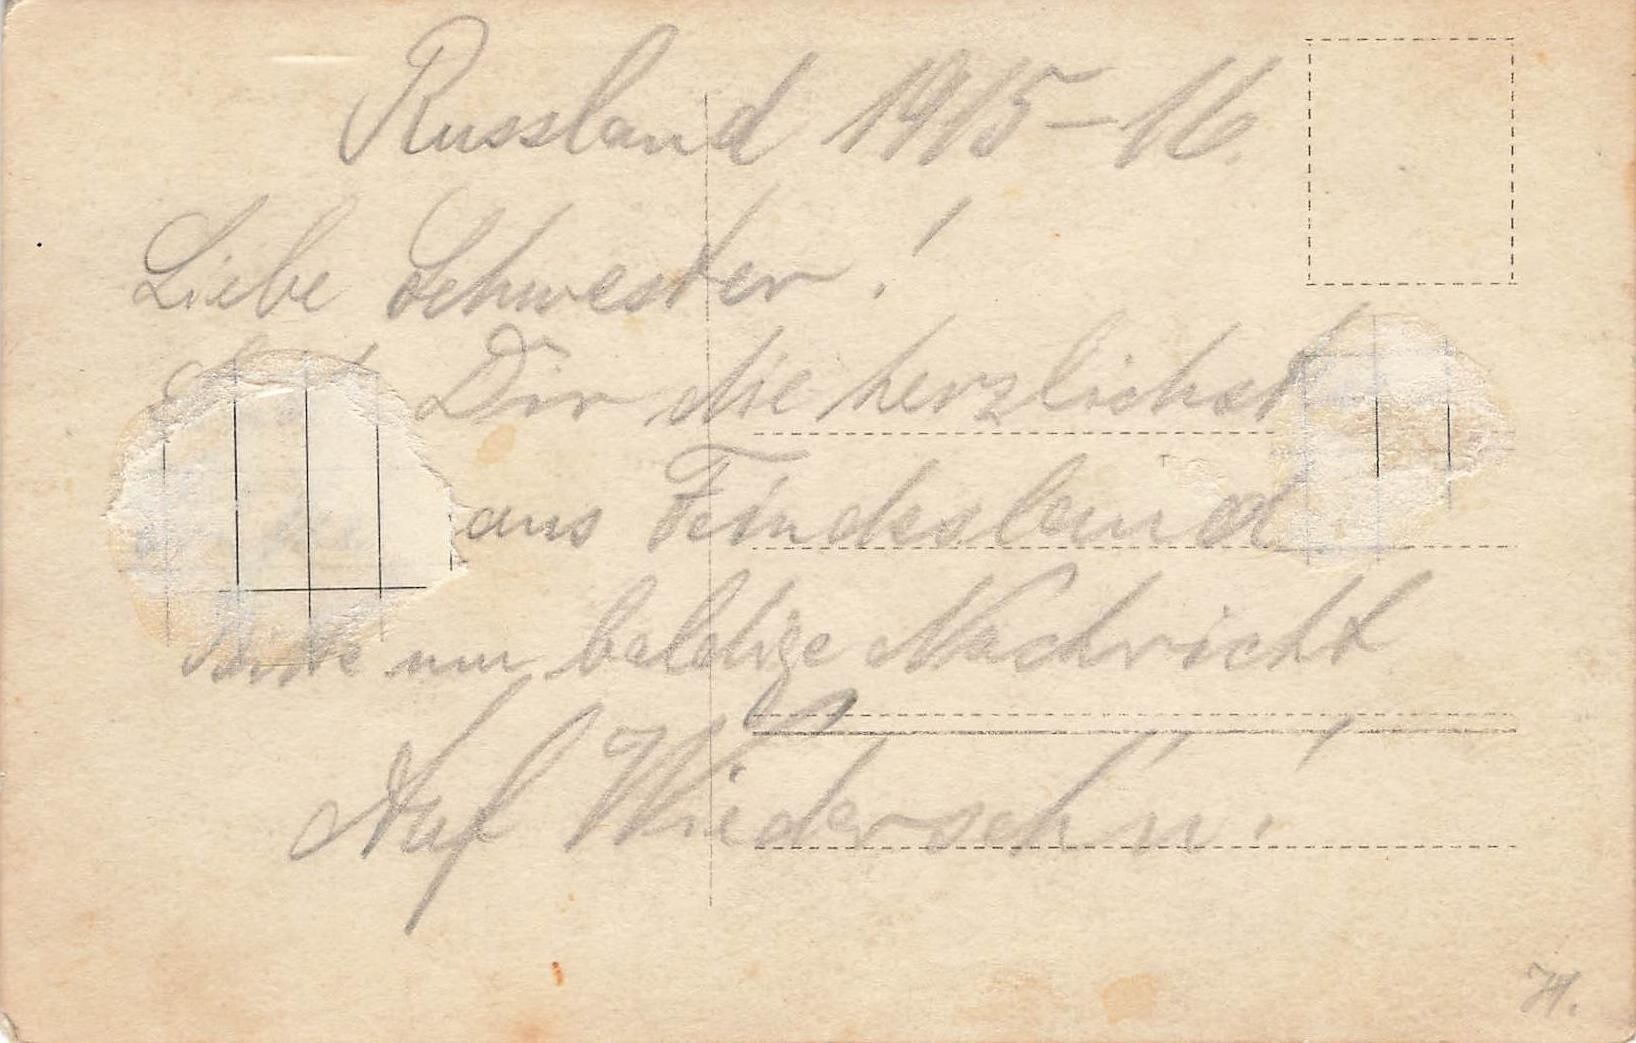 Russland 1915-16.
Liebe Schwester!
Dir die herzlichst
aus Feindesland
Bitte um baldige Nachricht
Auf Wiederseh'n!
H.